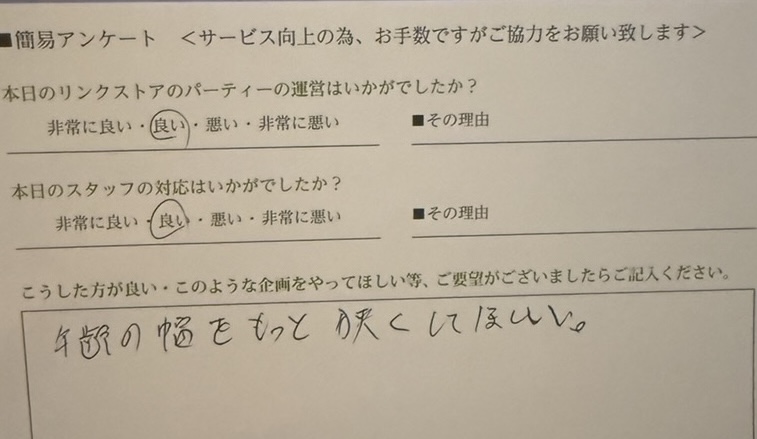 ■簡易アンケート <サービス向上の為、お手数ですがご協力をお願い致します>
本日のリンクストアのパーティーの運営はいかがでしたか?
非常に良い・良い・悪い・非常に悪い ■その理由
本日のスタッフの対応はいかがでしたか?
非常に良い・良い・悪い・非常に悪い ■その理由
こうした方が良い・このような企画をやってほしい等、ご要望がございましたらご記入ください。
年齢の幅をもっと狭くしてほしい。